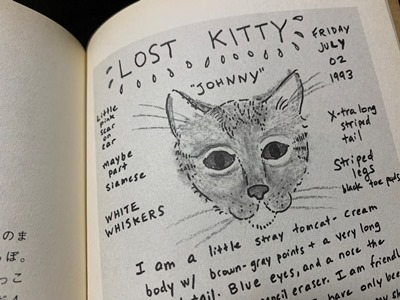 LOST KITTY
"JOHNNY"
FRIDAY
JULY
02
1993
Little
pink
scar
on
ear
maybe
part
siamese
WHITE
WHISKERS
X-tra long
striped
tail
Striped
legs
black toe pads
I am a little stray tomcat - cream
body w/ brown-gray points + a very long
tail. Blue eyes, and a nose the
pencil eraser. I am friendly
have only been
のま
ぽ。
っこ